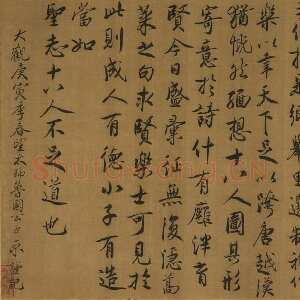 樂以幸天下足以跨唐越漢
猶恍然緬想十八人圖其形
寄意於詩什有廱泮育
賢今日盛彙征無復隱蒿
萊之句求賢樂士可見於
此則成人有德小子有造
當如
聖志十八人不足道也
大觀庚寅季春望太師魯國公臣京謹記